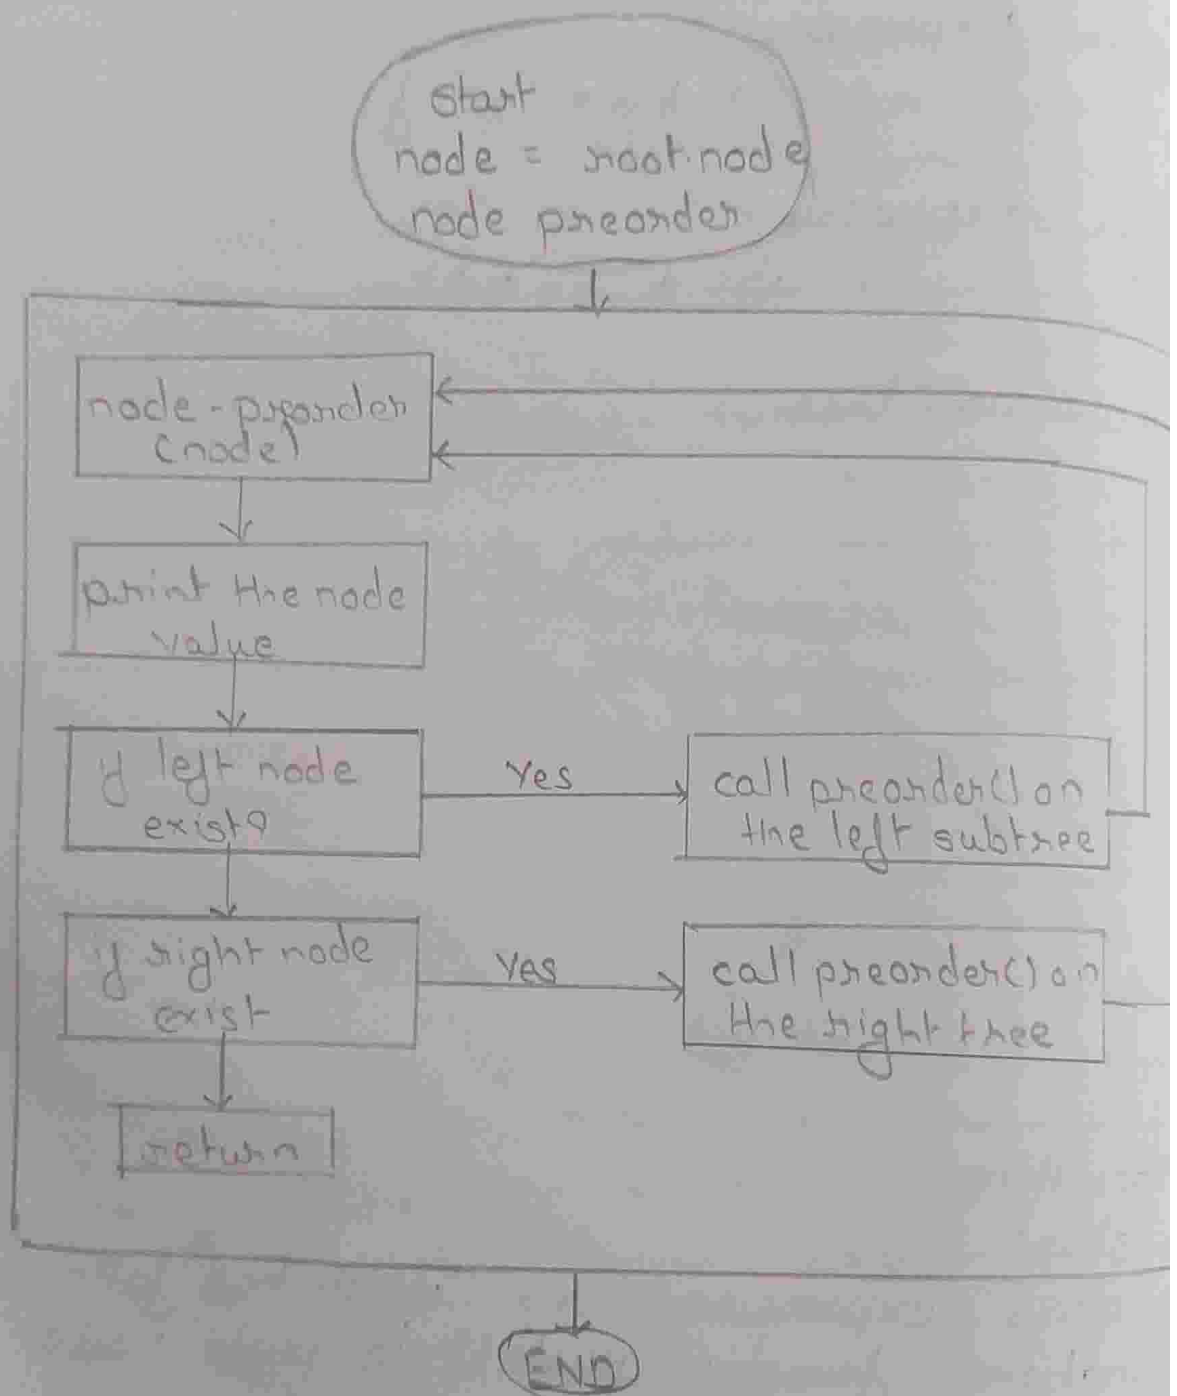 start
node = root.node
node preorder
node-preorder
(node)
print the node
value
if left node
exist?
Yes
call preorder() on
the left subtree
if right node
exist
Yes
call preorder() on
the right tree
return
END